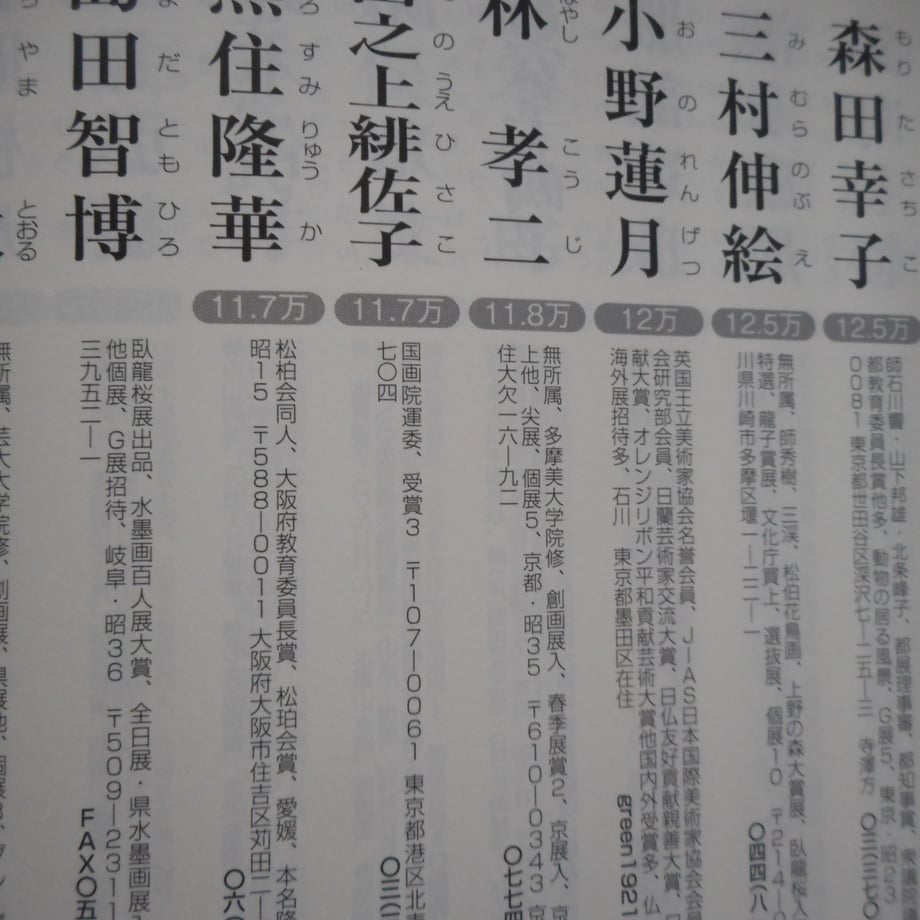 森田幸子
もりたさちこ
12.5万
師石川響・山下邦雄・北条峰子、都展理事審、都知事賞、衆議院議
都教育委員長賞他多、動物の居る風景、G展5、東京・昭23
0081 東京都世田谷区深沢七ー二五ー三 寺澤方
三村伸絵
みむらのぶえ
12.5万
無所属、師秀樹、三渓、松伯花鳥画、上野の森大賞展、臥龍桜入
特選、龍子賞展、文化庁買上、選抜展、個展10 〒214ー
川県川崎市多摩区堰一ー二二ー一
〇四四(八
小野蓮月
おのれんげつ
12万
英国王立美術家協会名誉会員、JIAS日本国際美術家協会会員
会研究部会員、日蘭芸術家交流大賞、日仏友好貢献親善大賞、
献大賞、オレンジリボン平和貢献芸術大賞他国内外受賞多、仏
海外展招待多、石川 東京都墨田区在住
green1921
林 孝二
はやし こうじ
11.8万
無所属、多摩美大学院修、創画展入、春季展賞2、京展入、京
上他、尖展、個展5、京都・昭35 〒610ー0343 京
住大欠一六ー九二
〇七七四
之上緋佐子
のうえひさこ
11.7万
国画院運委、受賞3 〒107ー0061 東京都港区北青
七〇四
〇三(三
住隆華
すみりゅうか
11.7万
松柏会同人、大阪府教育委員長賞、松珀会賞、愛媛、本名隆
昭15 〒588ー0011 大阪府大阪市住吉区苅田二ー
〇六(
島田智博
だともひろ
臥龍桜展出品、水墨画百人展大賞、全日展・県水墨画展入
他個展、G展招待、岐阜・昭36 〒509ー2311
三九五二ー一
FAX〇五
やま
とおる
無所属、芸大大学院修、創画展、県展他、個展8、グ